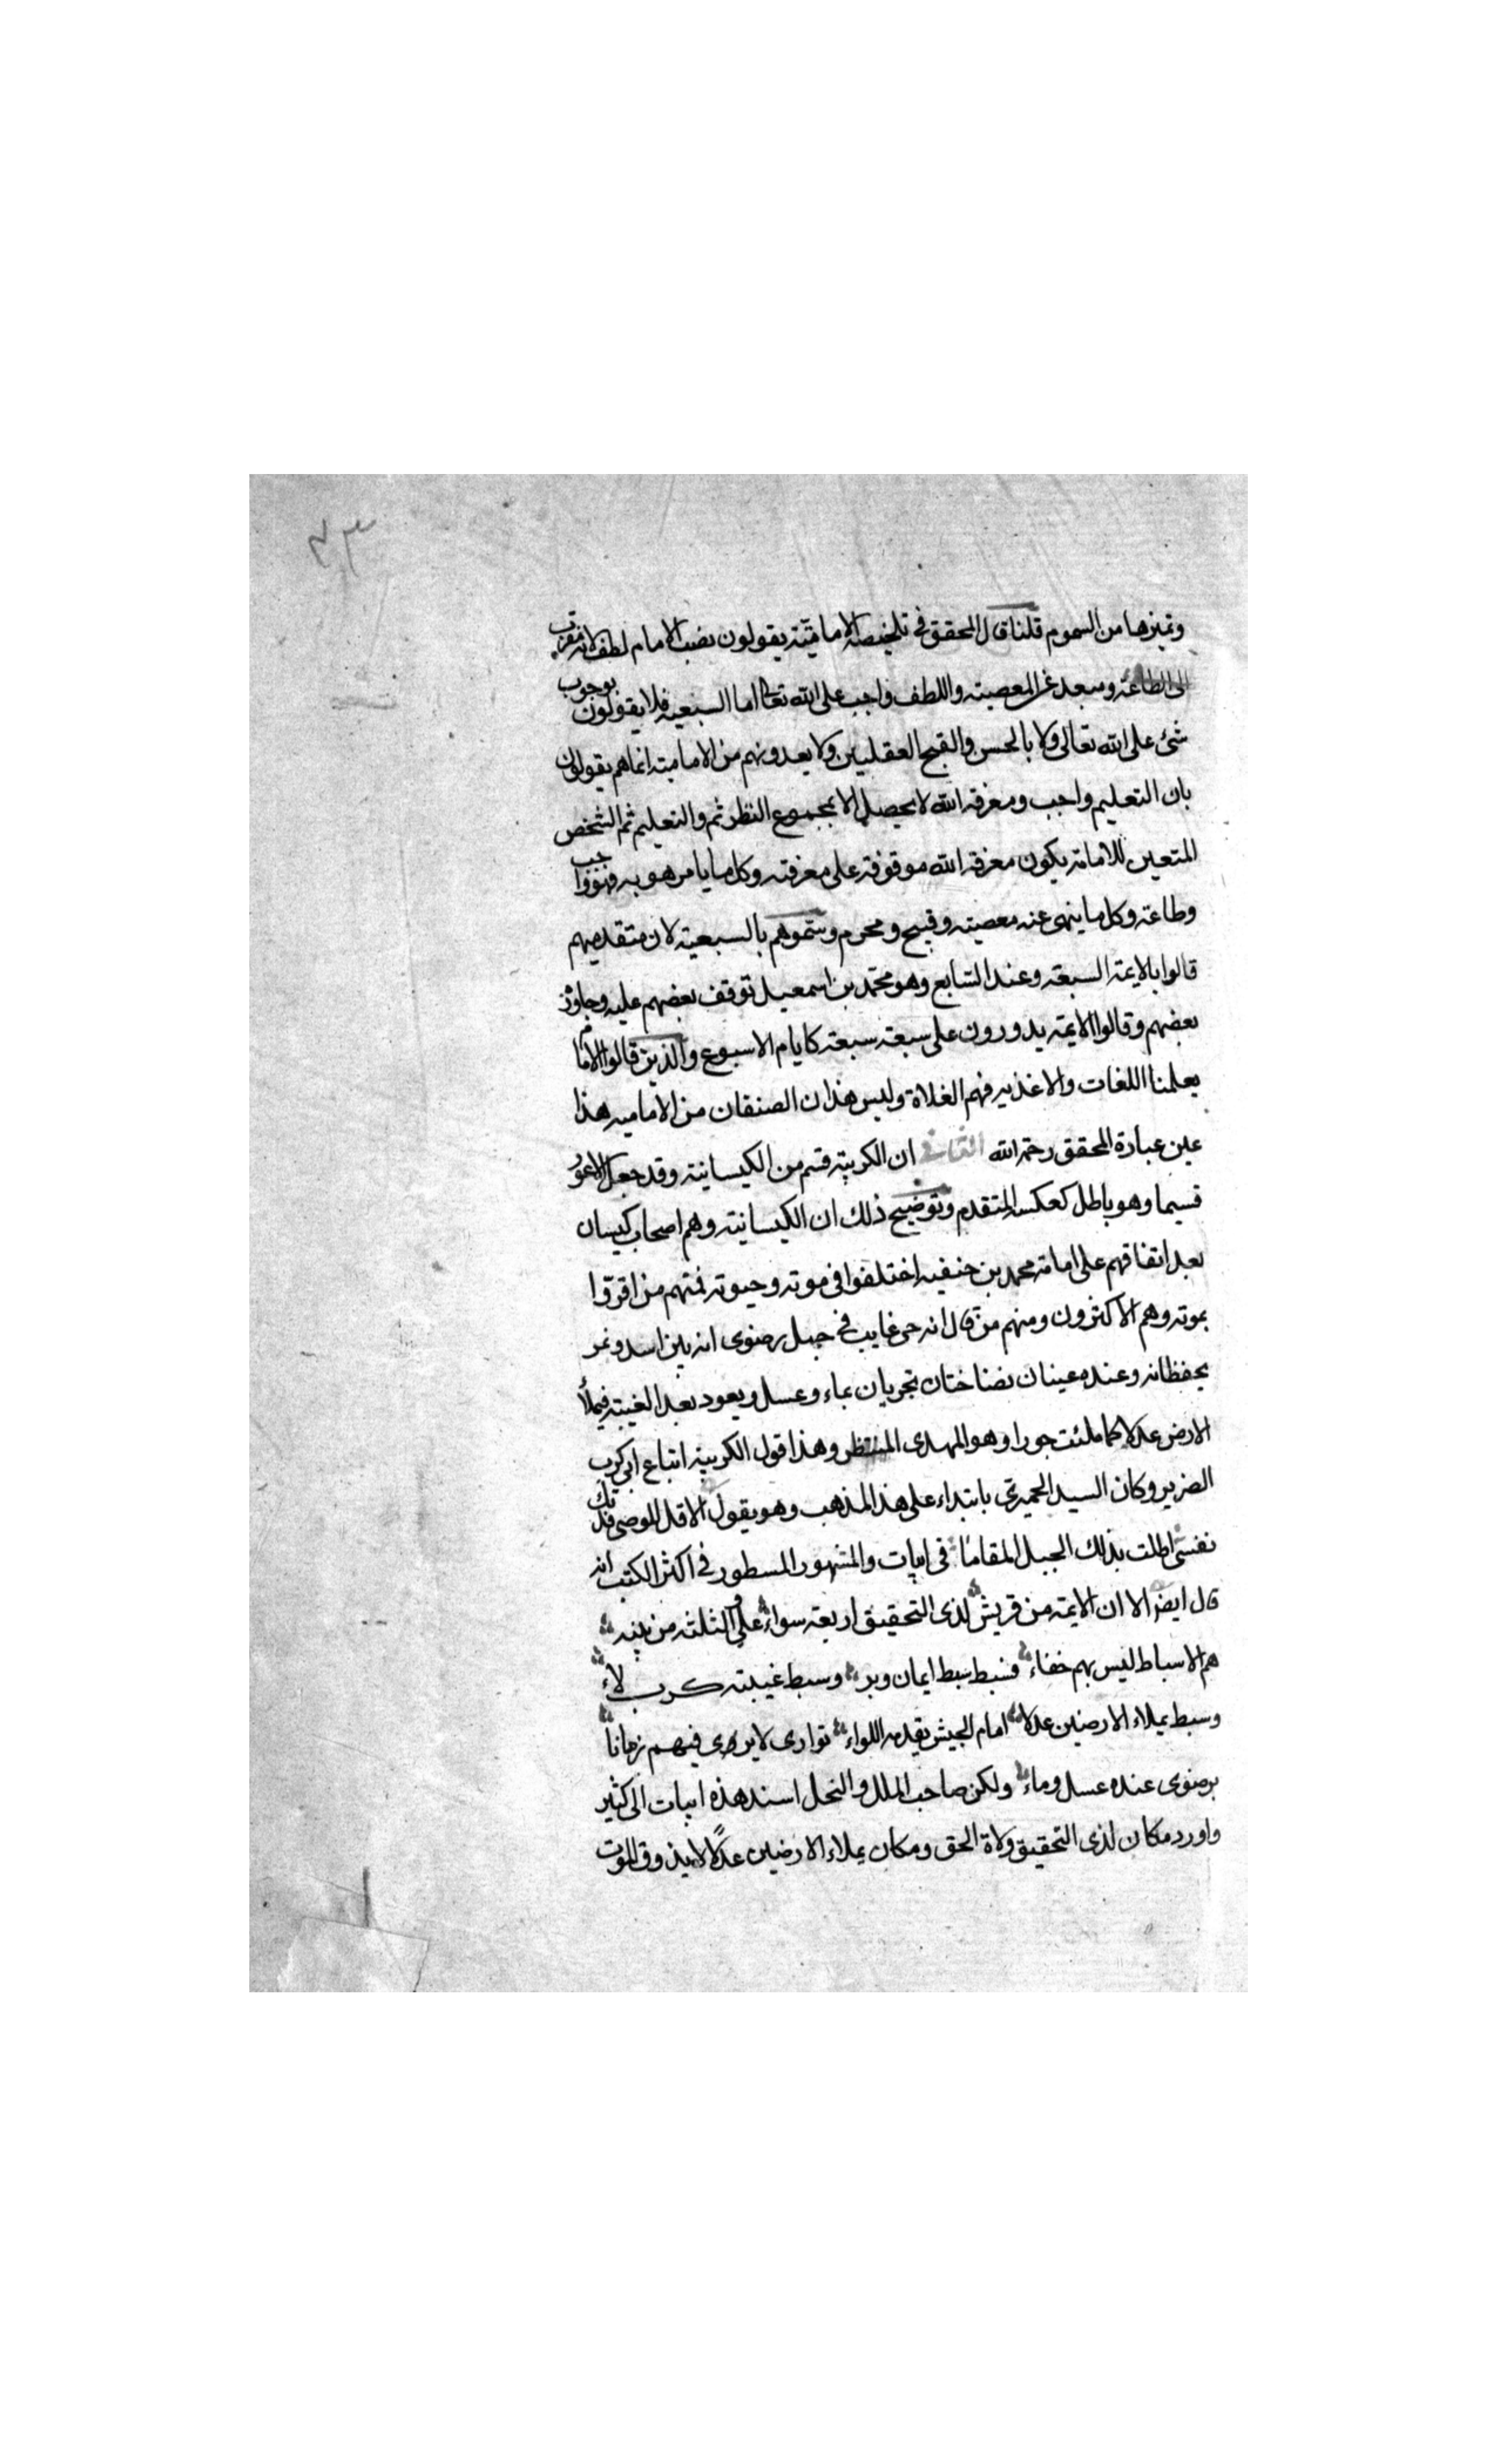 ٤٣
وتميزها من السموم قلنا قال المحقق في تلخيصه الامامية يقولون نصب الامام لطف لانه مقرب
الى الطاعة ومبعد عن المعصية واللطف واجب على الله تعالى اما السبعية فلا يقولون بوجوب
شئ على الله تعالى ولا بالحسن والقبح العقليين ولا يعدونهم من الامامية انما هم يقولون
بان التعليم واجب ومعرفة الله لا يحصل الا بمجموع النظر ثم والتعليم ثم الشخص
المتعين للامامة يكون معرفة الله موقوفة على معرفته وكل ما يامر هو به فهو واجب
وطاعة وكل ما ينهى عنه معصية وقبيح ومحرم وسموهم بالسبعية لان متقدميهم
قالوا بالايمة السبعة وعند السابع وهو محمد بن اسمعيل توقف بعضهم عليه وجاوز
بعضهم وقالوا الايمة يدورون على سبعة سبعة كايام الاسبوع والذين قالوا الامام
يعلمنا اللغات والاغذيه فهم الغلاة وليس هذان الصنفان من الاماميه هذا
عين عبارة المحقق رحمة الله الثاني ان الكربية قسم من الكيسانية وقد جعل الاعور
قسيما وهو باطل كعكسه المتقدم وتوضيح ذلك ان الكيسانية وهم اصحاب كيسان
بعد اتفاقهم على امامة محمد بن حنفيه اختلفوا في موته وحيوته فمنهم من اقروا
بموته وهم الاكثرون ومنهم من قال انه حى غايب في جبل رضوى انه بين اسد ونمر
يحفظانه وعنده عينان نضاختان تجريان بماء وعسل ويعود بعد الغيبة فيملأ
الارض عدلا كما ملئت جورا وهو المهدى المنتظر وهذا قول الكربية اتباع ابى كرب
الضرير وكان السيد الحميرى بابتداء على هذا المذهب وهو يقول الا قل للوصى فدتك
نفسى اطلت بذلك الجبل المقاما في ابيات والمشهور المسطور في اكثر الكتب انه
قال ايضا الا ان الايمة من قريش لذى التحقيق اربعة سواء على والثلثة من بنيه
هم الاسباط ليس بهم خفاء فسبط سبط ايمان وبر وسبط غيبته كربلاء
وسبط يملاء الارضين عدلا امام الجيش يقدمه اللواء توارى لا يرى فيهم زمانا
برضوى عنده عسل وماء ولكن صاحب الملل والنحل اسند هذه ابيات الى كثير
واورد مكان لذى التحقيق ولاة الحق ومكان يملاء الارضين عدلا لا يذوق الموت